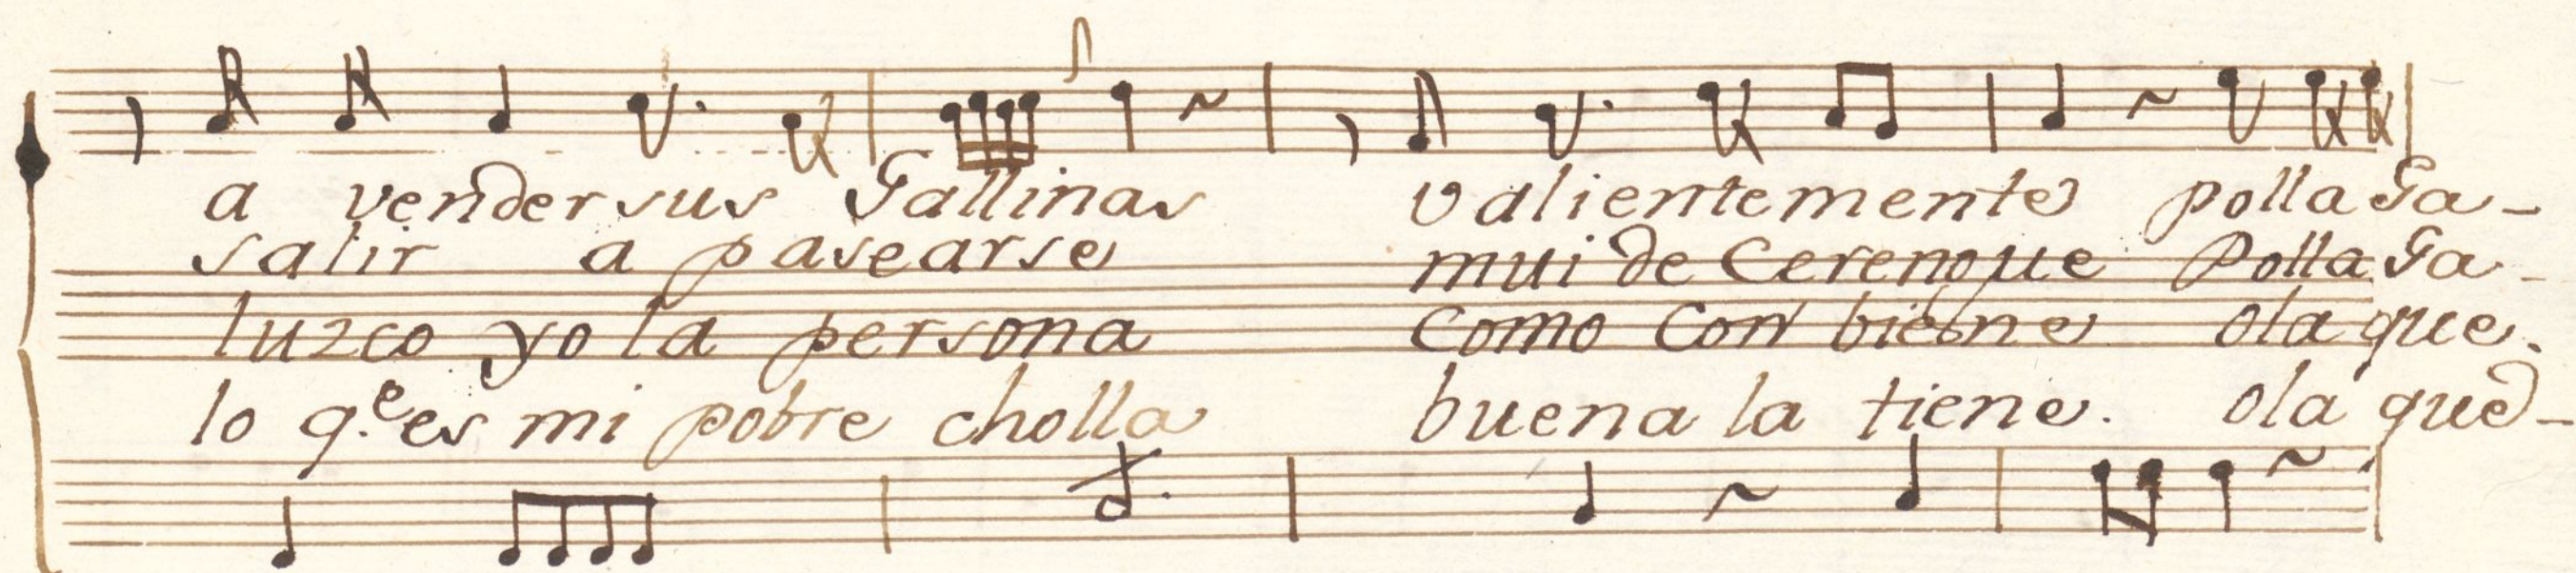 a vender sus Gallinas valientemente polla Ga-
salir a pasearse mui de Cerenque Polla Ga-
luzco yo la persona Como Conbiene ola que.
lo q.e es mi pobre cholla buena la tiene. ola que-